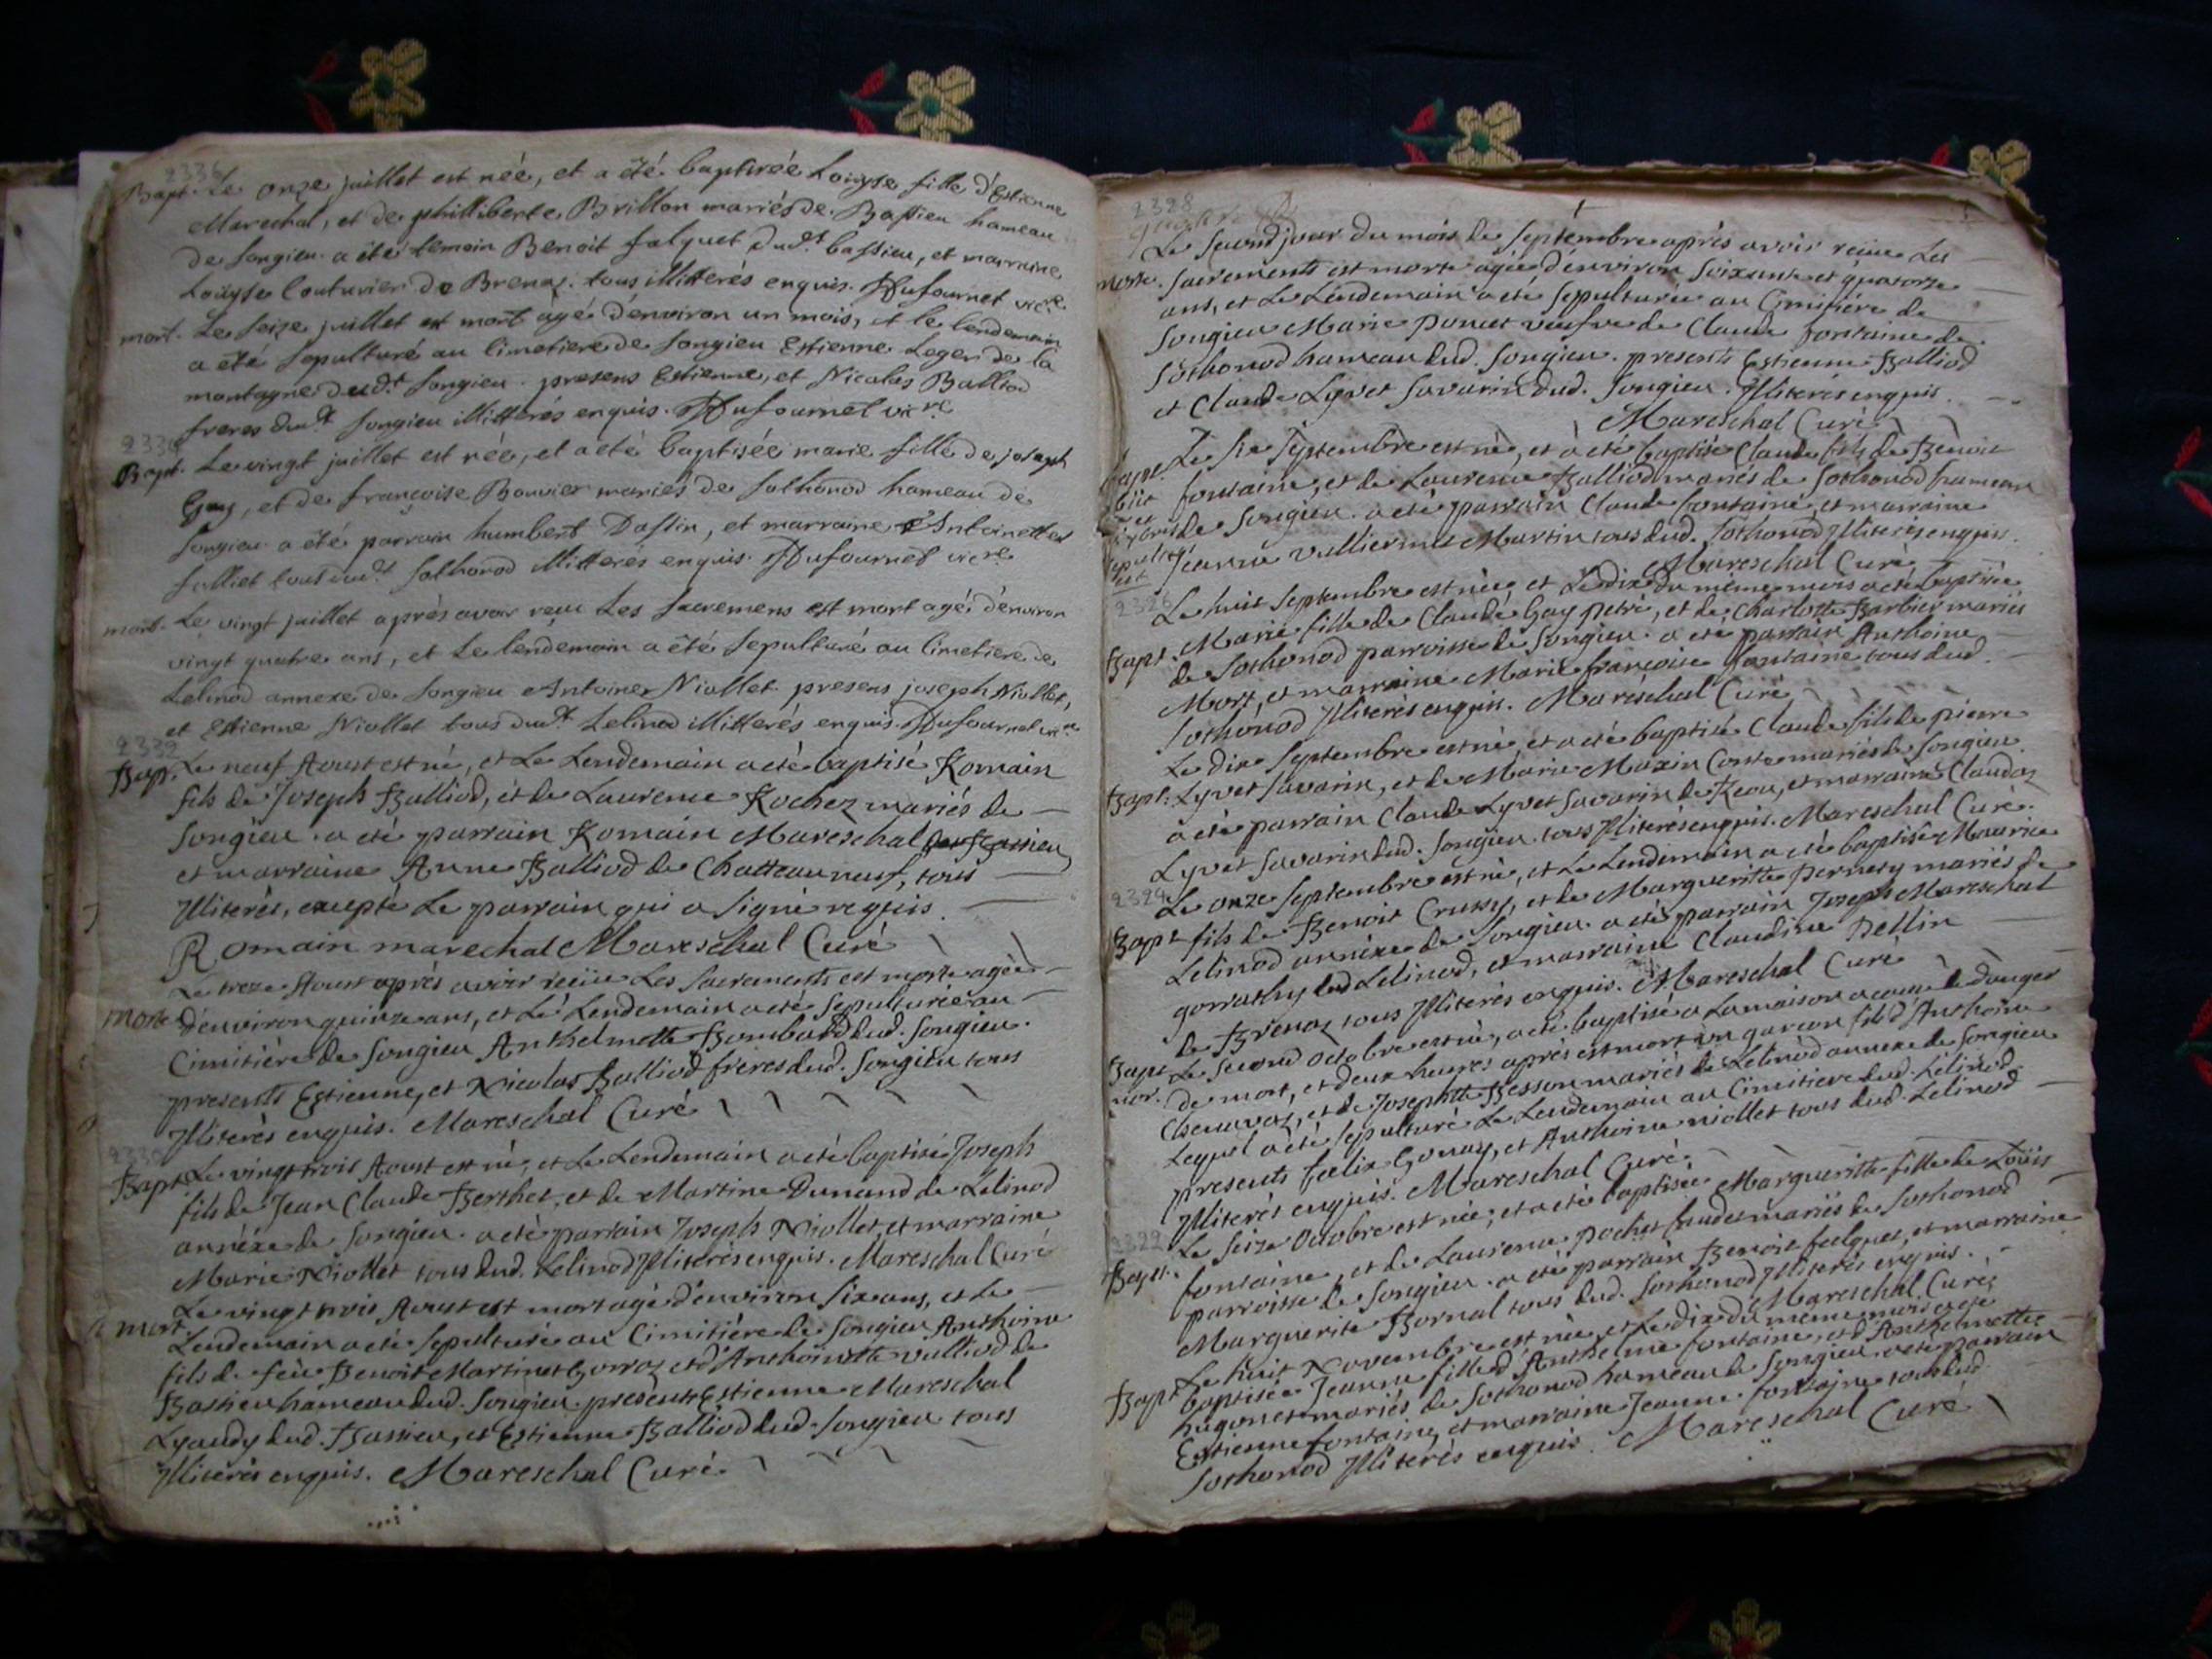 2336
Bapt. Le onze juillet est née, et a été baptisée Louyse fille d'Estienne
Marechal, et de philliberte Brillon mariés de Bassieu hameau
de songieu. a été temoin Benoit falquet dud.t bassieu, et marraine
Louyse Couturier de Brenaz. tous illitterés enquis. Dufournet vic.re
mort. Le seize juillet est mort agé d'environ un mois, et le lendemain
a été sepulturé au cimetiere de songieu Estienne Leger de la
montagne dud.t songieu. presens Estienne, et Nicolas Balliod
freres dud.t songieu illitterés enquis. Dufournet vic.re
Bapt. Le vingt juillet est née, et a été baptisée marie fille de joseph
Guy, et de françoise Bouvier mariés de sothonod hameau de
songieu. a été parrain humbert Dassin, et marraine Antoinette
folliet tous dud.t sothonod illitterés enquis. Dufournet vic.re
mort. Le vingt juillet après avoir reçu les sacremens est mort agé d'environ
vingt quatre ans, et le lendemain a été sepulturé au cimetiere de
Lelinod annexe de songieu Antoine Niollet. presens joseph Niollet,
et Estienne Niollet tous dud.t Lelinod illitterés enquis. Dufournet vic.re
2332
Bap. Le neuf Aoust est né, et Le Lendemain a eté baptisé Romain
fils de Joseph Balliod, et de Laurence Rochez mariés de
Songieu. a eté parrain Romain Mareschal
et marraine Anne Balliod de Chatteauneuf, tous
Illiterés, excepté Le parrain qui a signé requis.
Romain marechal Mareschal Curé
Le treze Aoust après avoir reçüe Les sacrements est morte agée
morte d'environ quinze ans, et Le Lendemain a eté sepulturée au
Cimitière de Songieu Anthelmette Bombard dud. Songieu.
presents Estienne, et Nicolas Balliod freres dud. Songieu tous
Illiterés enquis. Mareschal Curé
2330
Bapt Le vingt trois Aoust est né, et Le Lendemain a eté baptisé Joseph
fils de Jean Claude Berthet, et de Martine Dunand de Lelinod
annéxe de Songieu. a eté parrain Joseph Niollet, et marraine
Marie Niollet tous dud. Lelinod Illiterés enquis. Mareschal Curé
Le vingt trois Aoust est mort agé d'environ six ans, et Le
mort. Lendemain a eté sepulturé au Cimitière de Songieu Anthoine
fils de feü Benoit Martinet Gorraz et d'Anthoinette vulliod de
Bassieu hameau dud. Songieu. presents Estienne Mareschal
Lyaudy dud. Bassieu, et Estienne Balliod dud. Songieu tous
Illiterés enquis. Mareschal Curé.
2328
Le second jour du mois de Septembre après avoir reçue Les
morte. sacrements est morte agée d'environ soixante et quatorze
ans, et Le Lendemain a eté sepulturée au Cimitière de
Songieu Marie Poncet veufve de Claude fontaine de
Sothonod hameau dud. Songieu. presents Estienne Balliod
et Claude Lyvet Savarin dud. Songieu. Illiterés enquis.
Mareschal Curé
bapt. Le six Septembre est né, et a eté baptisé Claude fils de Benoit
fontaine, et de Laurence Balliod mariés de Sothonod hameau
de Songieu. a eté parrain Claude fontaine, et marraine
Jeanne vulliermet Martin tous dud. Sothonod Illiterés enquis.
Mareschal Curé
2326
Le huit Septembre est née, et Le dix du même mois a eté baptisée
Bapt. Marie fille de Claude Gay petré, et de Charlotte Barbier mariés
de Sothonod parroisse de Songieu. a eté parrain Anthoine
Mort, et marraine Marie françoise fontaine tous dud.
Sothonod Illiterés enquis. Mareschal Curé
Le dix Septembre est né, et a eté baptisé Claude fils de pierre
Bapt. Lyvet Savarin, et de Marie Maxin Conte mariés de Songieu.
a eté parrain Claude Lyvet Savarin de Reou, et marraine Claudaz
Lyvet Savarin dud. Songieu. tous Illiterés enquis. Mareschal Curé.
2324
Le onze Septembre est né, et Le Lendemain a eté baptisé Maurice
Bapt fils de Benoit Crussy, et de Margueritte Pernety mariés de
Lelinod annéxe de Songieu. a eté parrain Joseph Mareschal
gorrathy dud Lelinod, et marraine Claudine Dellin
de Brenaz tous Illiterés enquis. Mareschal Curé
Bapt Le second Octobre est né, a eté baptisé a La maison a cause de danger
mor. de mort, et deux heures après est mort un garçon fils d'Anthoine
Chenavaz, et de Josephtte Besson mariés de Lelinod annexe de Songieu
Lequel a eté sepulturé Le Lendemain au Cimitière dud. Lelinod.
presents foelix Gonay, et Anthoine niollet tous dud. Lelinod
Illiterés enquis. Mareschal Curé.
2322
Le seize Octobre est née, et a eté baptisée Margueritte fille de Loüis
Bapt. fontaine, et de Laurence Pochet mariés de Sothonod
parroisse de Songieu. a eté parrain Benoit falquet, et marraine
Marguerite Bornal tous dud. Sothonod Illiterés enquis.
Mareschal Curé
Le huit Novembre est née, et Le dix du même mois a eté
Bapt baptisée Jeanne fille d'Anthelme fontaine, et d'Anthelmette
hugonet mariés de Sothonod hameau de Songieu. a eté parrain
Estienne fontaine, et marraine Jeanne fontaine tous dud.
Sothonod Illiterés enquis. Mareschal Curé